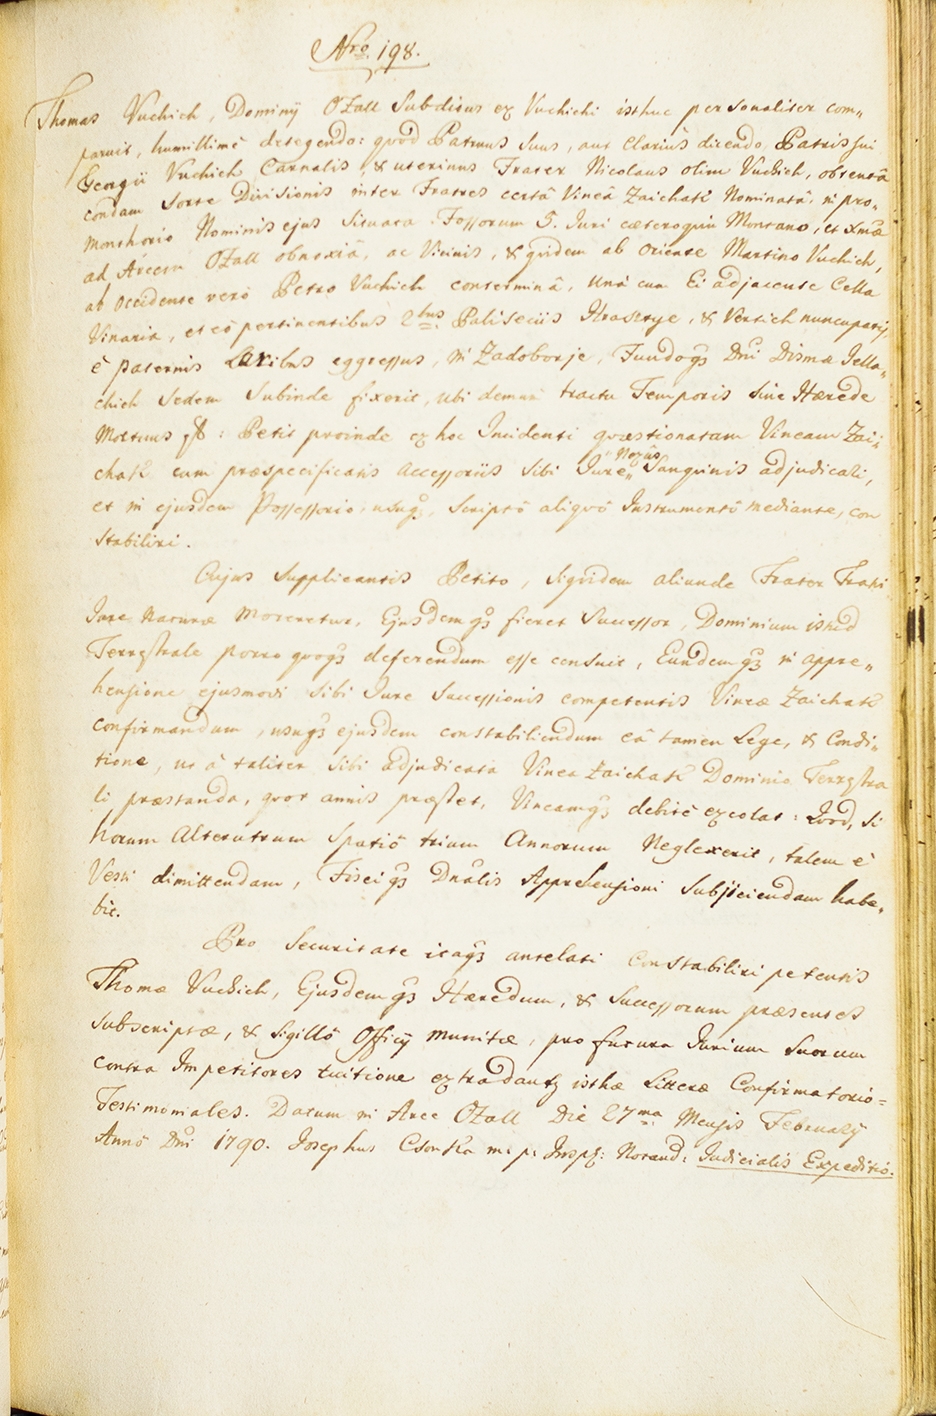 Nrō. 198.
Thomas Vuchich, Dominÿ Ozall Subditus ex Vuchichi isthuc personaliter com„
paruit, humillimè detegendo: quòd Patruus Suus, aut Clariùs dicendo, Patris sui
Georgii Vuchich Carnalis, & uterinus Frater Nicolaus olim Vuchich, obtentâ
condam Sorte Divisionis inter Fratres certâ Vineâ Zaichak Nominatâ, in pro„
monthorio Nominis ejus Situata Fossorum 5. Juri cæteroquin Montano, et
ad Arcem Ozall obnoxiâ, ac Vicinis, & quidem ab Oriente Martino Vuchich,
ab Occidente verò Petro Vuchich conterminâ, Unà cum Ei adjacente Cella
Vinaria, et eò pertinentibus 2bus Paliseciis Hrastye, & Vertich nuncupatis,
è paternis Laribus eggressus, in Zadoborje, Fundoqz Dni Dismæ Jella„
chich Sedem Subinde fixerit, ubi demum tractu Temporis Sine Hærede
Mortuus est: Petit proinde ex hoc Incidenti quæstionatam Vineam Zai„
chak cum præspecificatis accessoriis Sibi Jure „Nexus„ Sanguinis adjudicari,
et in ejusdem Possessorio, usuqz, Scriptô aliquô Instrumentô mediante, con
stabiliri.
Cujus Supplicantis Petito, Siquidem aliunde Frater Fratri
Jure Naturæ Moreretur, Ejusdemqz fieret Successor, Dominium istud
Terrestrale porro quoqz deferendum esse censuit, Eundemqz in appre„
hensione ejusmodi Sibi Jure Successionis competentis Vineæ Zaichak
confirmandum, usuqz ejusdem constabiliendum eâ tamen Lege, & Condi„
tione, ut à taliter Sibi adjudicata Vinea Zaichak Dominio Terrestra
li præstanda, quot annis præstet, Vineamqz debitè excolat: Quod, Si
horum Alterutrum Spatiô trium Annorum Neglexerit, talem è
Vesti dimittendam, Fisci qz Dnalis Apprehensioni Subjiciendam habe„
bit.
Pro Securitate itaqz antelati Constabiliri petentis
Thomæ Vuchich, Ejusdemqz Hæredum, & Successorum præsentes
Subscriptæ, & Sigillô Officÿ munitæ, pro futura Jurium Suorum
contra Impetitores tuitione extradantur isthæ Litteræ Confirmatorio=
Testimoniales. Datum in Arce Ozall Die 27ma Mensis Februarÿ
Annô Dni 1790. Josephus Csonka m: p: Insp: Norand: Judicialis Expeditio.